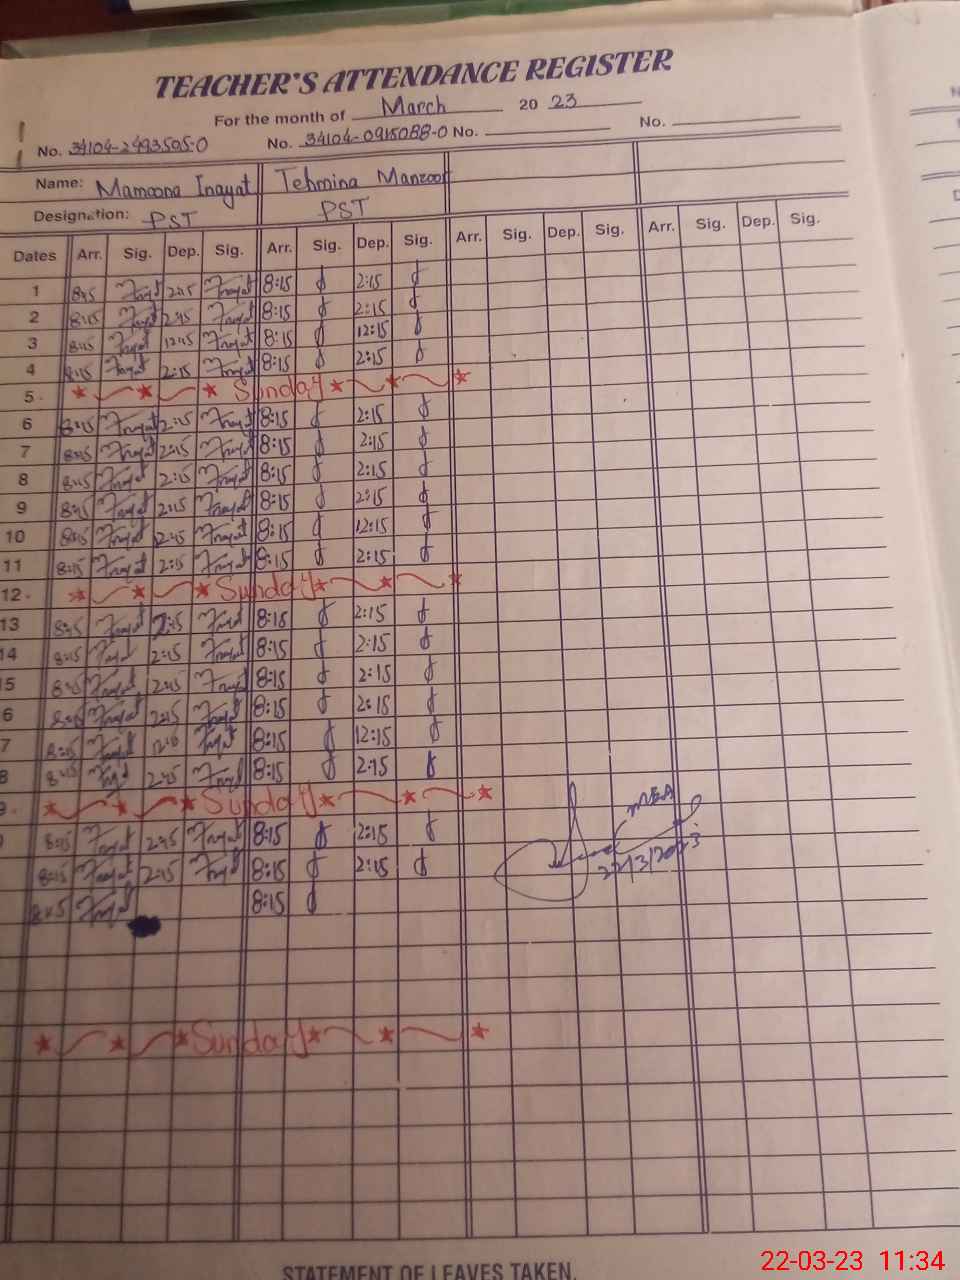 TEACHER'S ATTENDANCE REGISTER
For the month of March 20 23
No. 34104-2493505-0 No. 34104-0915088-0 No. No.
Name: Mamoona Inayat Tehmina Manzoor
Designation: PST PST
Dates Arr. Sig. Dep. Sig. Arr. Sig. Dep. Sig. Arr. Sig. Dep. Sig. Arr. Sig. Dep. Sig.
1 8:15 Inayat 2:15 Inayat 8:15 2:15
2 8:15 Inayat 2:15 Inayat 8:15 2:15
3 8:15 Inayat 12:15 Inayat 8:15 12:15
4 8:15 Inayat 2:15 Inayat 8:15 2:15
5 Sunday
6 8:15 Inayat 2:15 Inayat 8:15 2:15
7 8:15 Inayat 2:15 Inayat 8:15 2:15
8 8:15 Inayat 2:15 Inayat 8:15 2:15
9 8:15 Inayat 2:15 Inayat 8:15 2:15
10 8:15 Inayat 2:15 Inayat 8:15 12:15
11 8:15 Inayat 2:15 Inayat 8:15 2:15
12 Sunday
13 8:15 Inayat 2:15 Inayat 8:15 2:15
14 8:15 Inayat 2:15 Inayat 8:15 2:15
5 8:15 Inayat 2:15 Inayat 8:15 2:15
6 8:15 Inayat 2:15 Inayat 8:15 2:15
7 8:15 Inayat Inayat 8:15 12:15
8 8:15 Inayat 2:15 Inayat 8:15 2:15
Sunday
8:15 Inayat 2:15 Inayat 8:15 2:15
MEA
8:15 Inayat 2:15 Inayat 8:15 2:15
22/3/2023
8:15 Inayat 8:15
Sunday
STATEMENT OF LEAVES TAKEN.
22-03-23 11:34